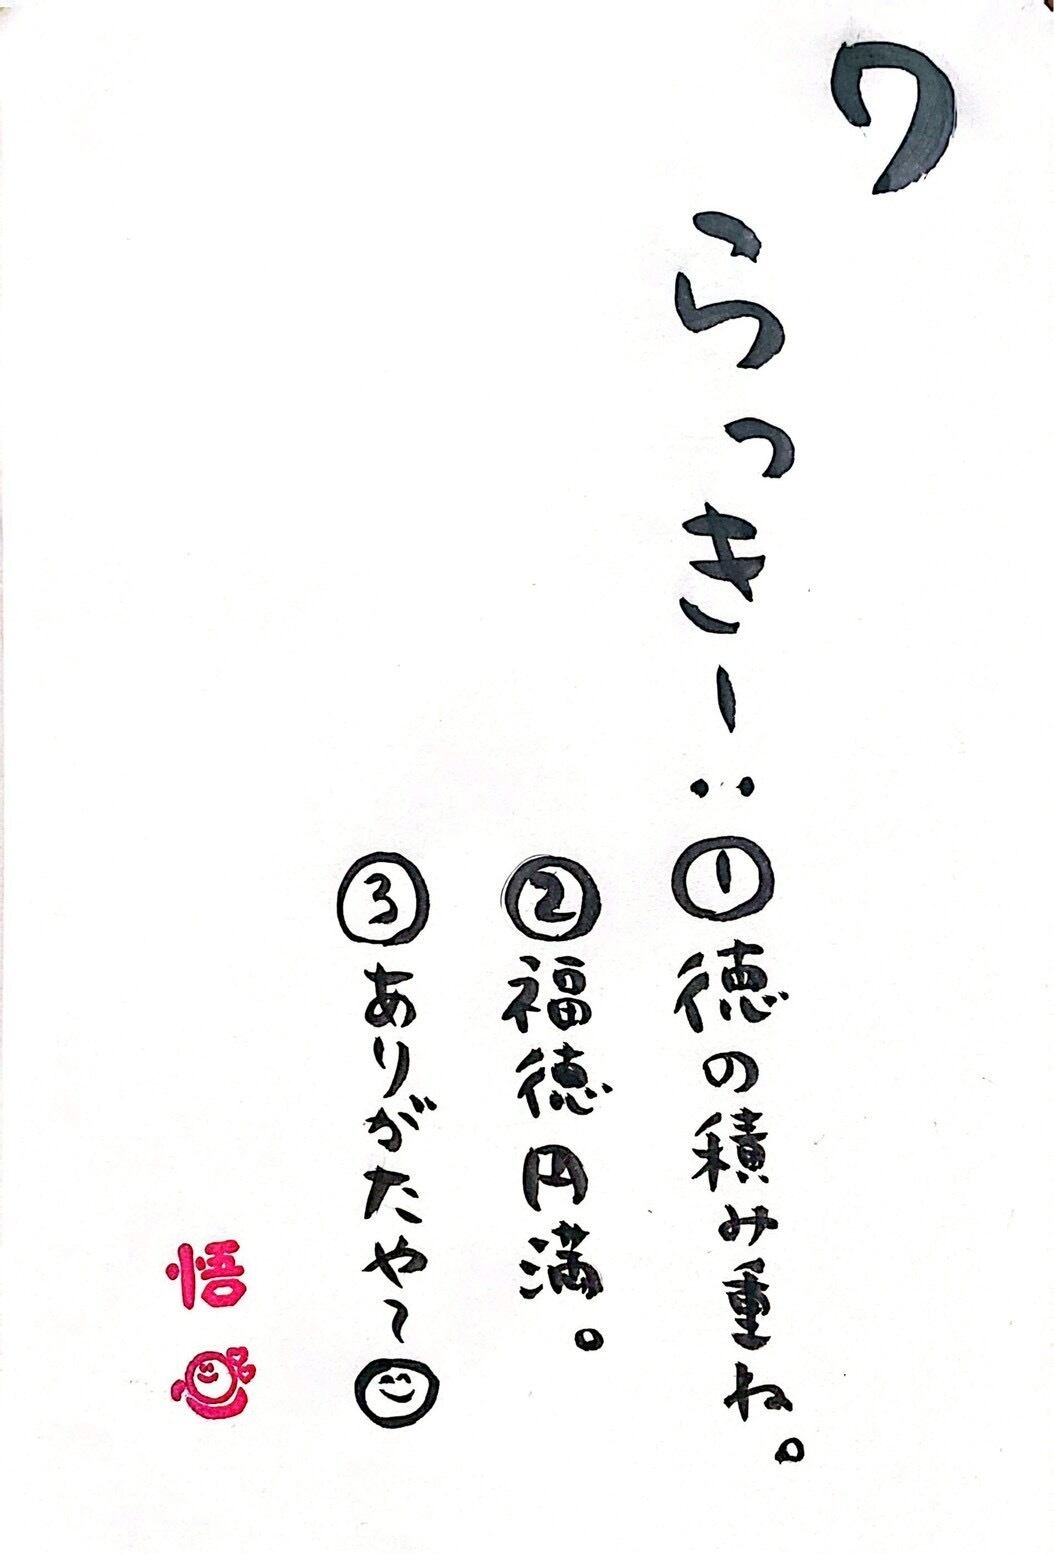 7
らっきー：①徳の積み重ね。
②福徳円満。
③ありがたや〜
悟